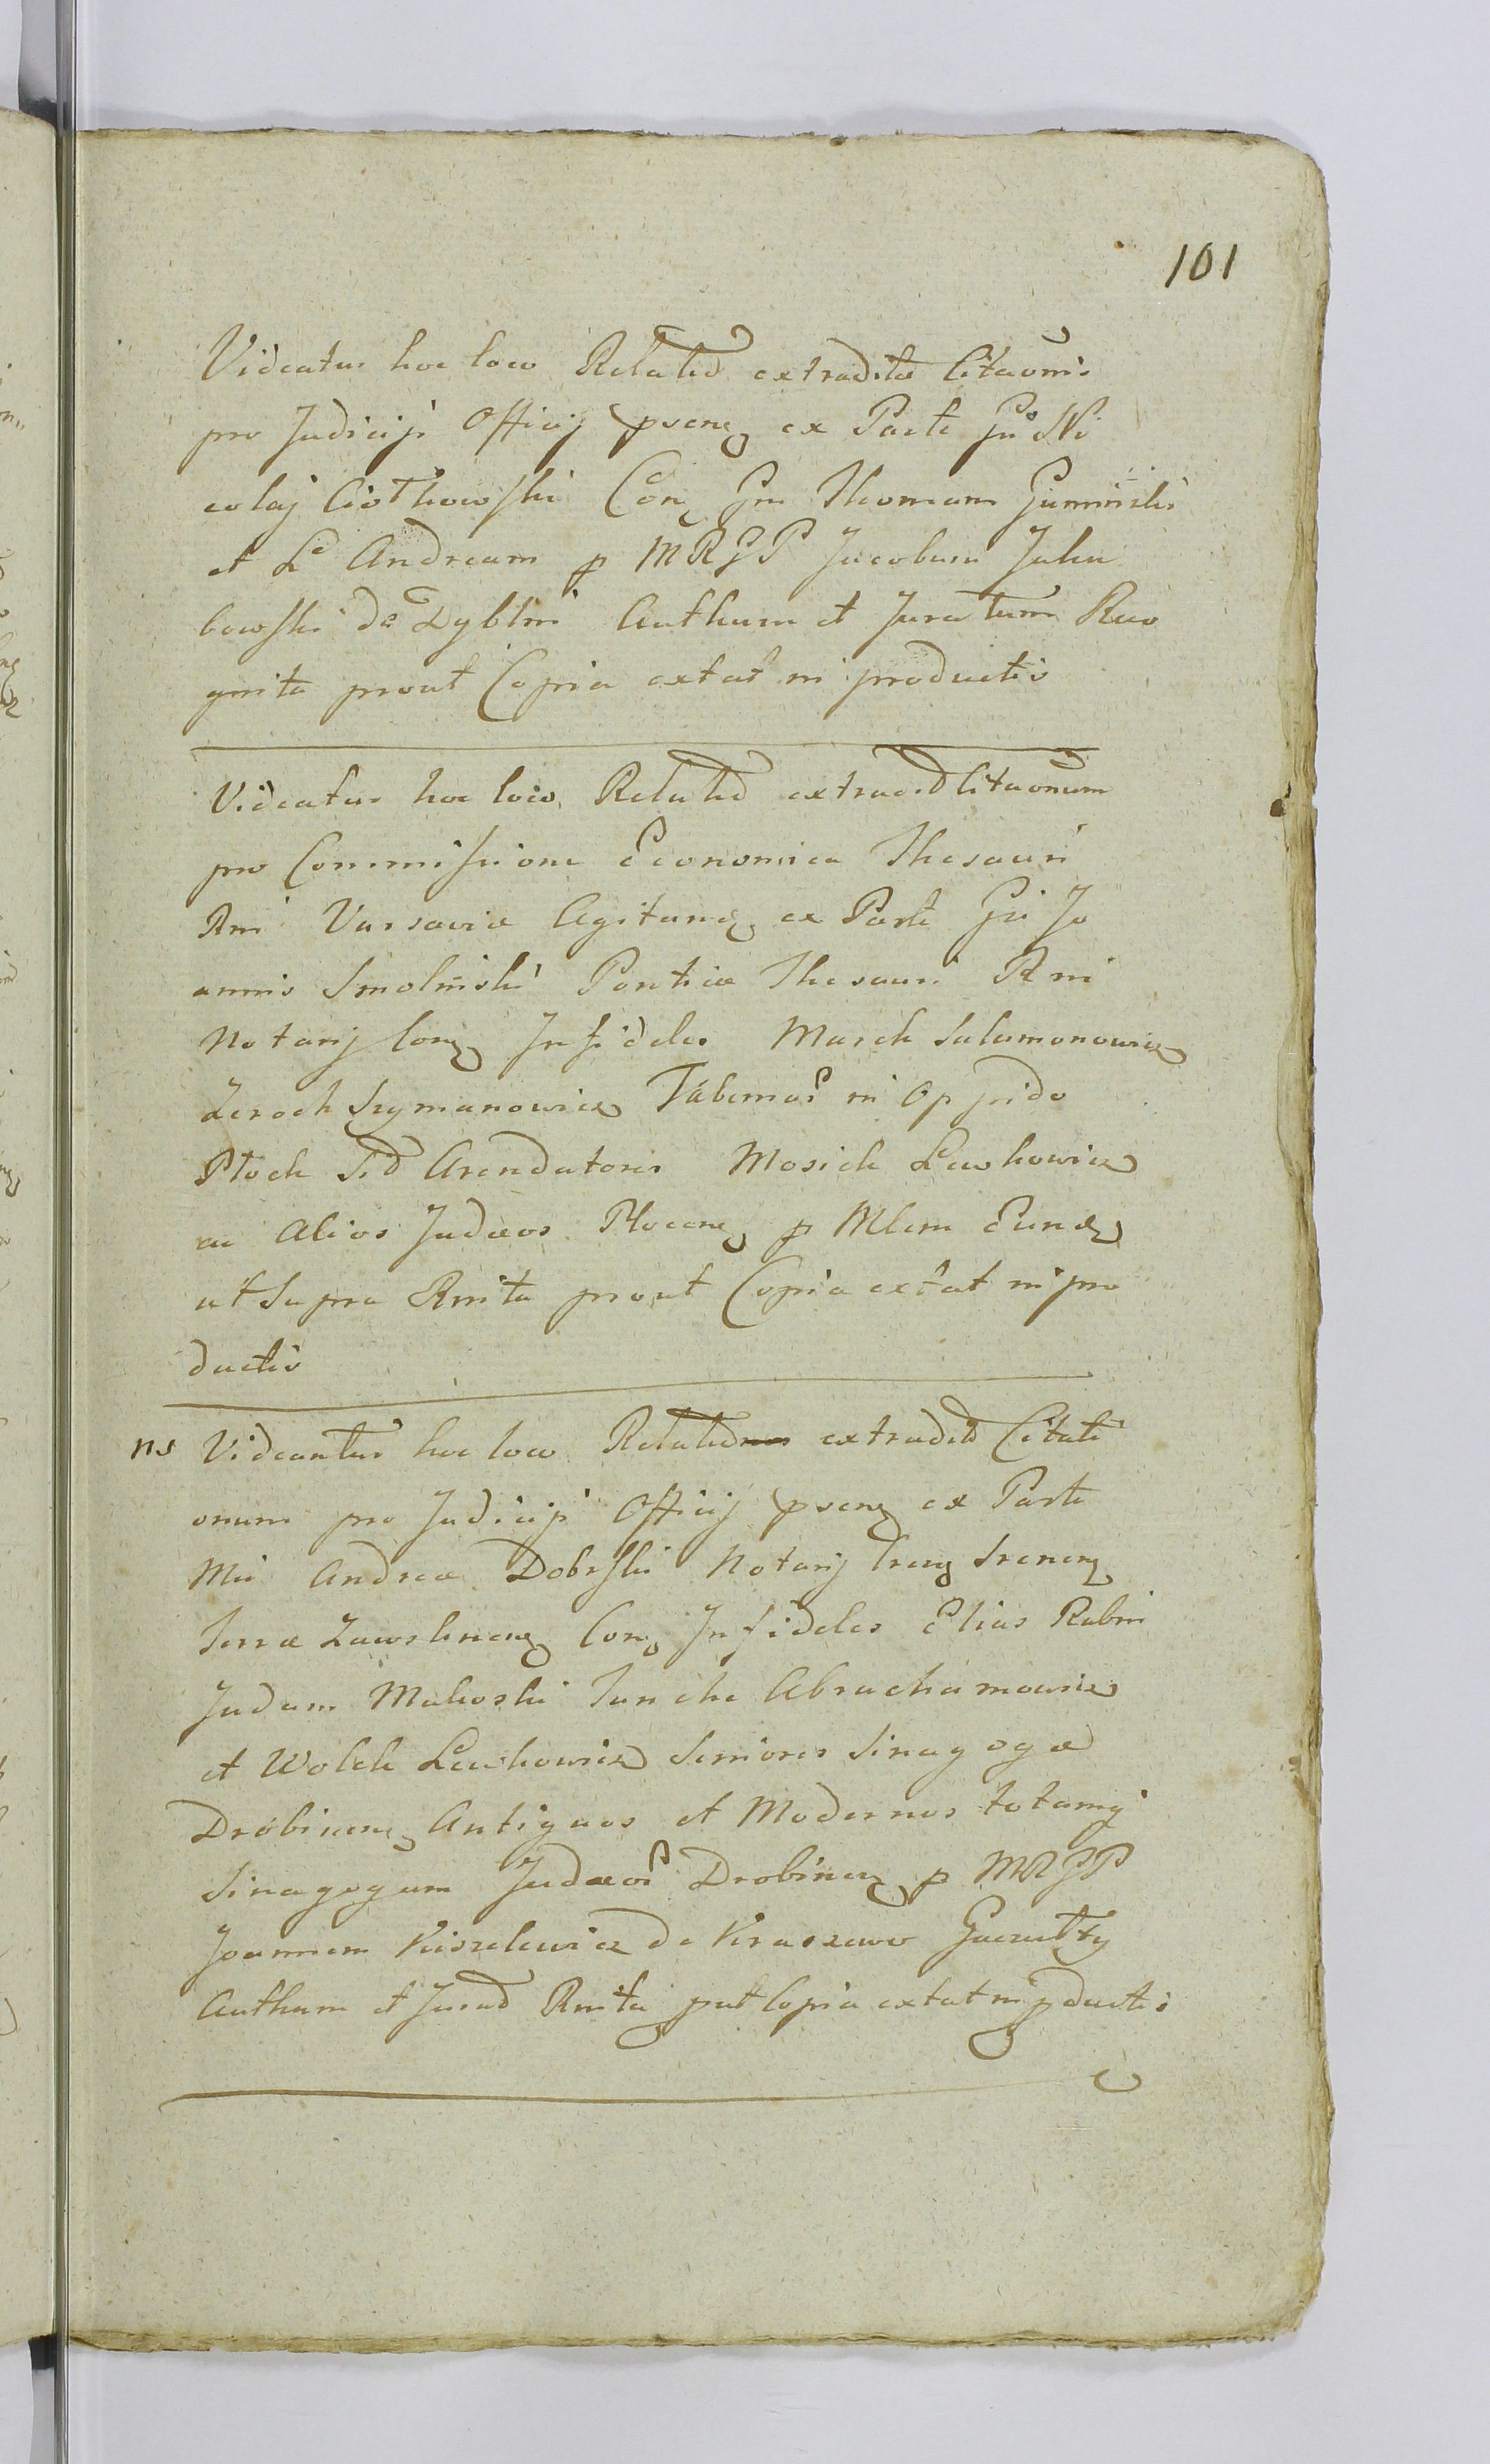 101
Videatur hoc loco Relatio extraditæ Citaõnis
pro Judicijs Officij psens ex Parte Gn̄i Ni
colaj Ciołkowski Con̄ Gm Thomam Gumiński
et Ld Andream p MRGP Jacobum Jaku
bowski de Dyblin Authum et Juratum Reco
gnita prout Copia extat in productis
Videatur hoc loco Relatio extradit Citaõnum
pro Commissione Economica Thesauri
Rni Varsaviæ Agitans ex Parte Gn̄i Jo
annis Smoliński Pontiæ Thesauri Rni
Notarij Con Infideles Marek Salamonowicz
Zeroch Szymanowicz Tabernar in Oppido
Płock Sid Arendatores Mosiek Lewkowicz
ac Alios Judæos Plocens p Mlem Eund
ut Supra Rnita prout Copia extat in pro
ductis
ns Videantur hoc loco Relatio extradit Citati
onum pro Judicijs Officij psens ex Parte
Mci Andreæ Dobrski Notarij Trens Srenens
Terræ Zawskrnens Con Infideles Elias Rabin
Judam Makoski Janche Abrachamowicz
et Wolek Lewkowicz Seniores Sinagogæ
Drobinens Antiquos et Modernos totamq
Sinagogam Judæor Drobinens p MRGP
Joannem Kiszelewicz de Kraszewo Gaczułty
Authum et Jurat Rnita put Copia extat in pductis